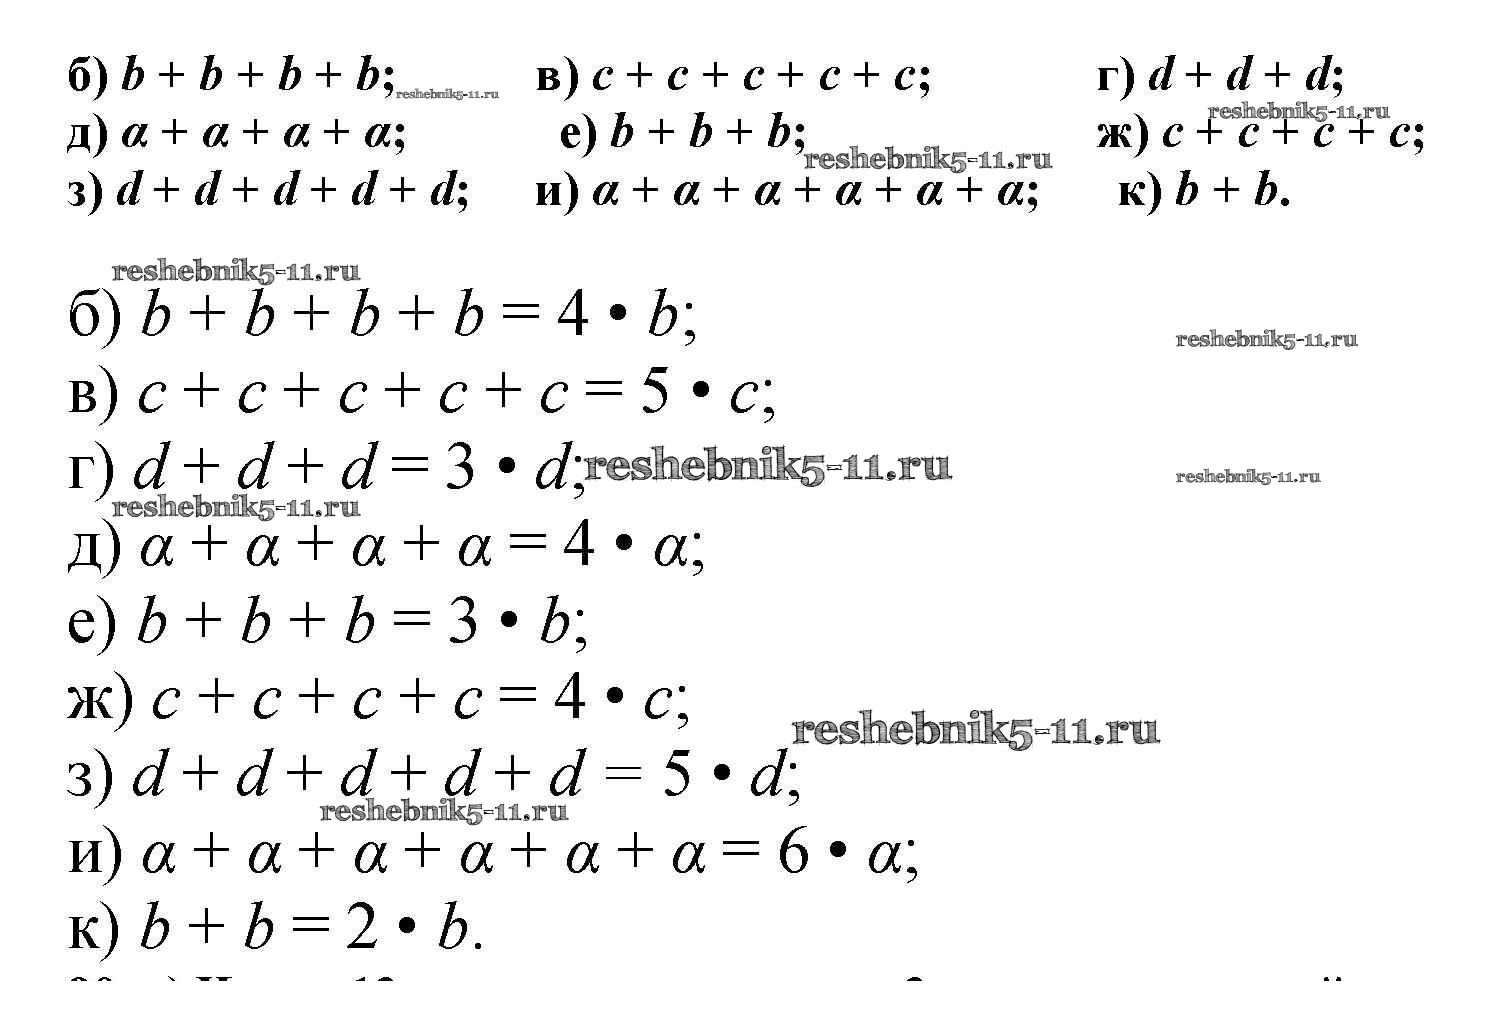 б) b + b + b + b; reshebnik5-11.ru в) c + c + c + c + c; г) d + d + d;
reshebnik5-11.ru
д) α + α + α + α; е) b + b + b; ж) c + c + c + c;
reshebnik5-11.ru
з) d + d + d + d + d; и) α + α + α + α + α + α; к) b + b.
reshebnik5-11.ru
б) b + b + b + b = 4 • b;
reshebnik5-11.ru
в) c + c + c + c + c = 5 • c;
г) d + d + d = 3 • d; reshebnik5-11.ru
reshebnik5-11.ru
reshebnik5-11.ru
д) α + α + α + α = 4 • α;
е) b + b + b = 3 • b;
ж) c + c + c + c = 4 • c;
reshebnik5-11.ru
з) d + d + d + d + d = 5 • d;
reshebnik5-11.ru
и) α + α + α + α + α + α = 6 • α;
к) b + b = 2 • b.